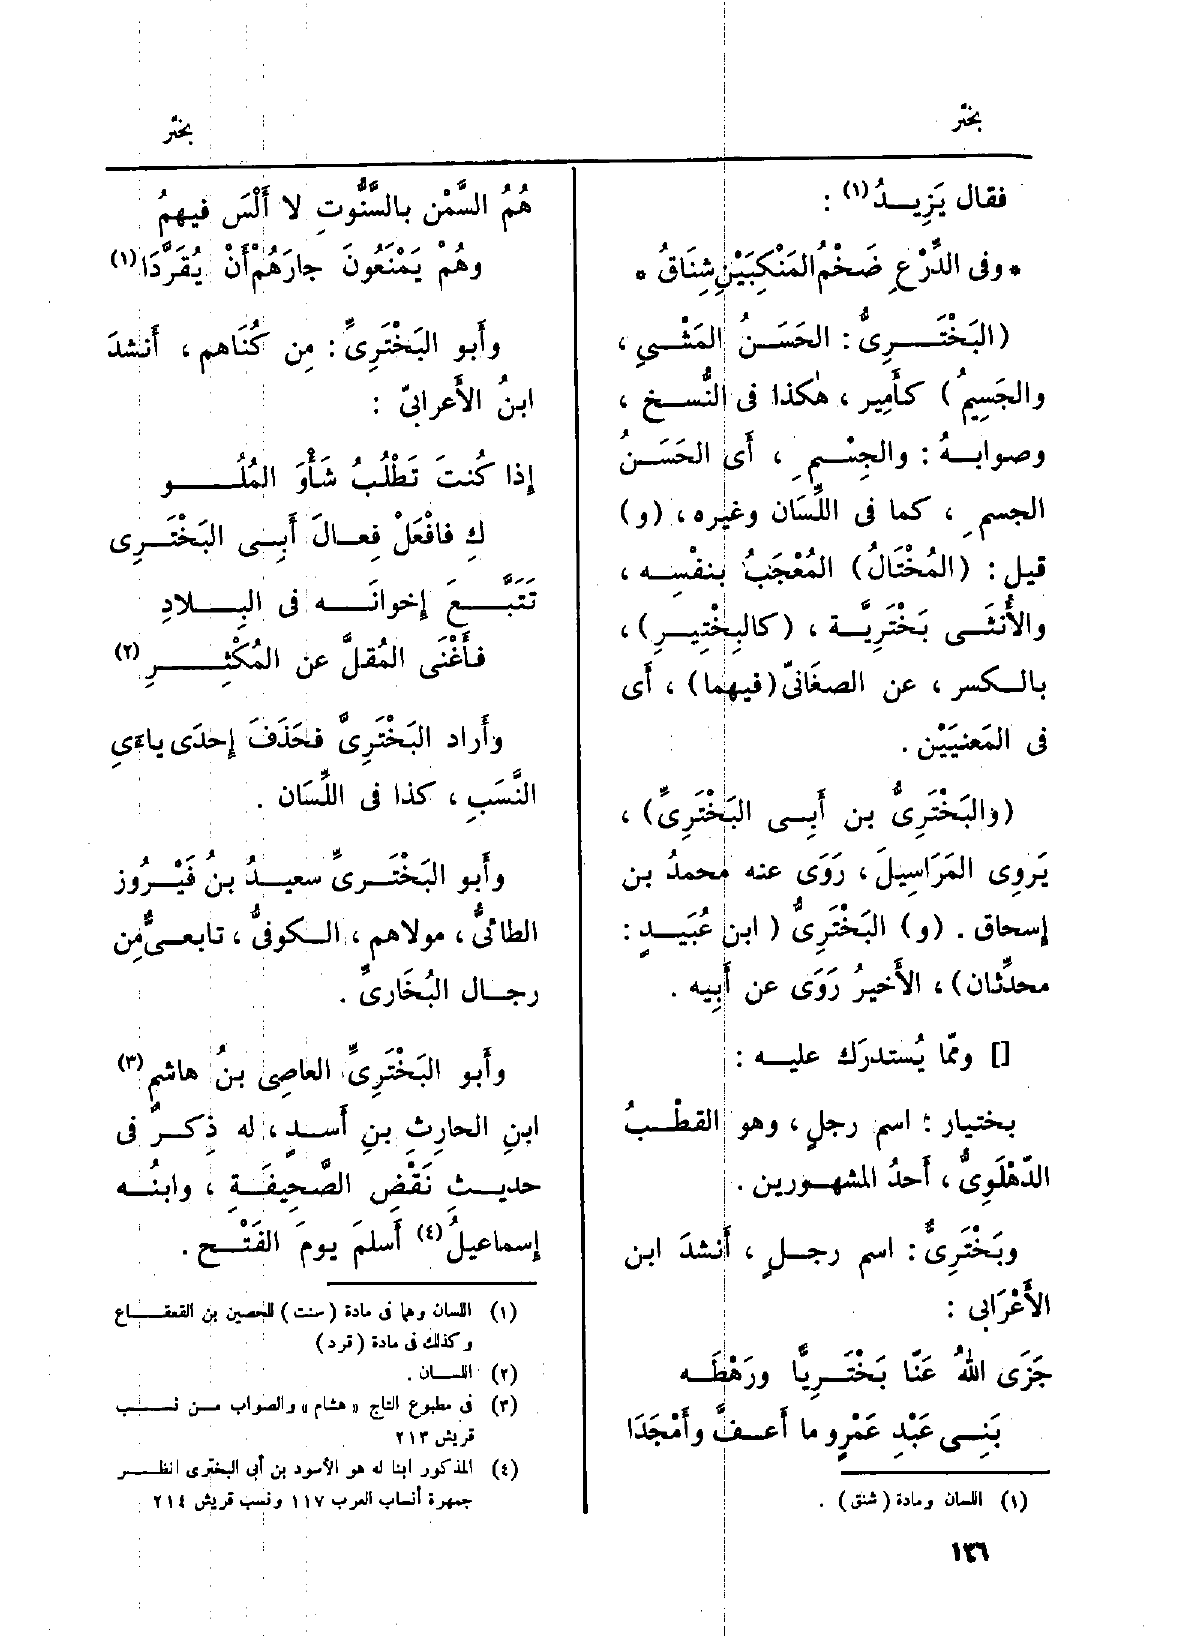 بختر
بختر
فقال يَزِيــدُ (١) :
* وفى الدِّرْعِ ضَخْمُ المَنْكِبَيْنِ شِنَاقُ *
(البَخْتَــرِىُّ : الحَسَــنُ المَشْــيِ ،
والجَسِيمُ ) كأَمِير ، هٰكذا فى النُّســخ ،
وصوابــهُ : والجِسْــمِ ، أَى الحَسَــنُ
الجسمِ ، كما فى اللِّسَان وغيره ، (و)
قيل : (المُخْتَالُ) المُعْجَبُ بنفْسِــه ،
والأُنثَــى بَخْتَرِيَّــة ، (كالبِخْتِيــرِ) ،
بالــكسر ، عن الصغَانىّ (فيهما) ، أَى
فى المَعنيَيْن .
(والبَخْتَرِىُّ بن أَبِــى البَخْتَرِىِّ) ،
يَروِى المَرَاسِيلَ ، رَوَى عنه محمدُ بن
إسحاق . (و) البَخْتَرِىُّ ( ابن عُبَيــدٍ :
محدِّثان) ، الأَخيرُ رَوَى عن أَبِيه .
[] وممّا يُستدرَك عليــه :
بختيار : اسم رجلٍ ، وهو القطْــبُ
الدّهْلَوِىُّ ، أَحدُ المشهــورين .
وبَخْتَرِىٌّ : اسم رجــلٍ ، أَنشدَ ابن
الأَعْرَابى :
جَزَى اللهُ عَنّا بَخْتَــرِيًّا ورَهْطَــه
بَنِــى عَبْدِ عَمْرٍو ما أَعــفَّ وأَمْجَدَا
(١) اللسان ومادة (شنق) .
هُمُ السَّمْن بالسَّنُّوتِ لا أَلْسَ فيهمُ
وهُمْ يَمْنَعُونَ جارَهُمْ أَنْ يُقَرَّدَا (١)
وأَبو البَخْتَرِىِّ : مِن كُنَاهم ، أَنشدَ
ابنُ الأَعرابىّ :
إذا كُنتَ تَطْلُبُ شَأْوَ المُلُــو
كِ فافْعَلْ فِعــالَ أَبِــى البَخْتَــرِى
تَتَبَّــعَ إخوانَــه فى البِــلادِ
فأَغْنَى المُقلَّ عن المُكْثِــرِ (٢)
وأَراد البَخْتَرِىَّ فحَذَفَ إحدَى ياءَىِ
النَّسَبِ ، كذا فى اللِّسَان .
وأَبو البَخْتَــرِىِّ سعيــدُ بنُ فَيْرُوز
الطائىُّ ، مولاهم ، الــكوفىُّ ، تابعــىٌّ مِن
رجــال البُخَارىِّ .
وأَبو البَخْتَرِىِّ العاصِى بنُ هاشمِ (٣)
ابنِ الحارِثِ بنِ أَســدٍ ، له ذِكــرٌ فى
حديــثِ نَقْضِ الصَّحِيفَــةِ ، وابنُــه
إسماعيلُ (٤) أَسلمَ يومَ الفَتْــح .
(١) اللسان وهما فى مادة (سنت) للحصين بن القعقــاع
وكذلك فى مادة (قرد)
(٢) اللســان .
(٣) فى مطبوع التاج «هشام» والصواب مــن نســب
قريش ٢١٣
(٤) المذكور ابنا له هو الأسود بن أبى البخترى انظــر
جمهرة أنساب العرب ١١٧ ونسب قريش ٢١٤
١٣٦